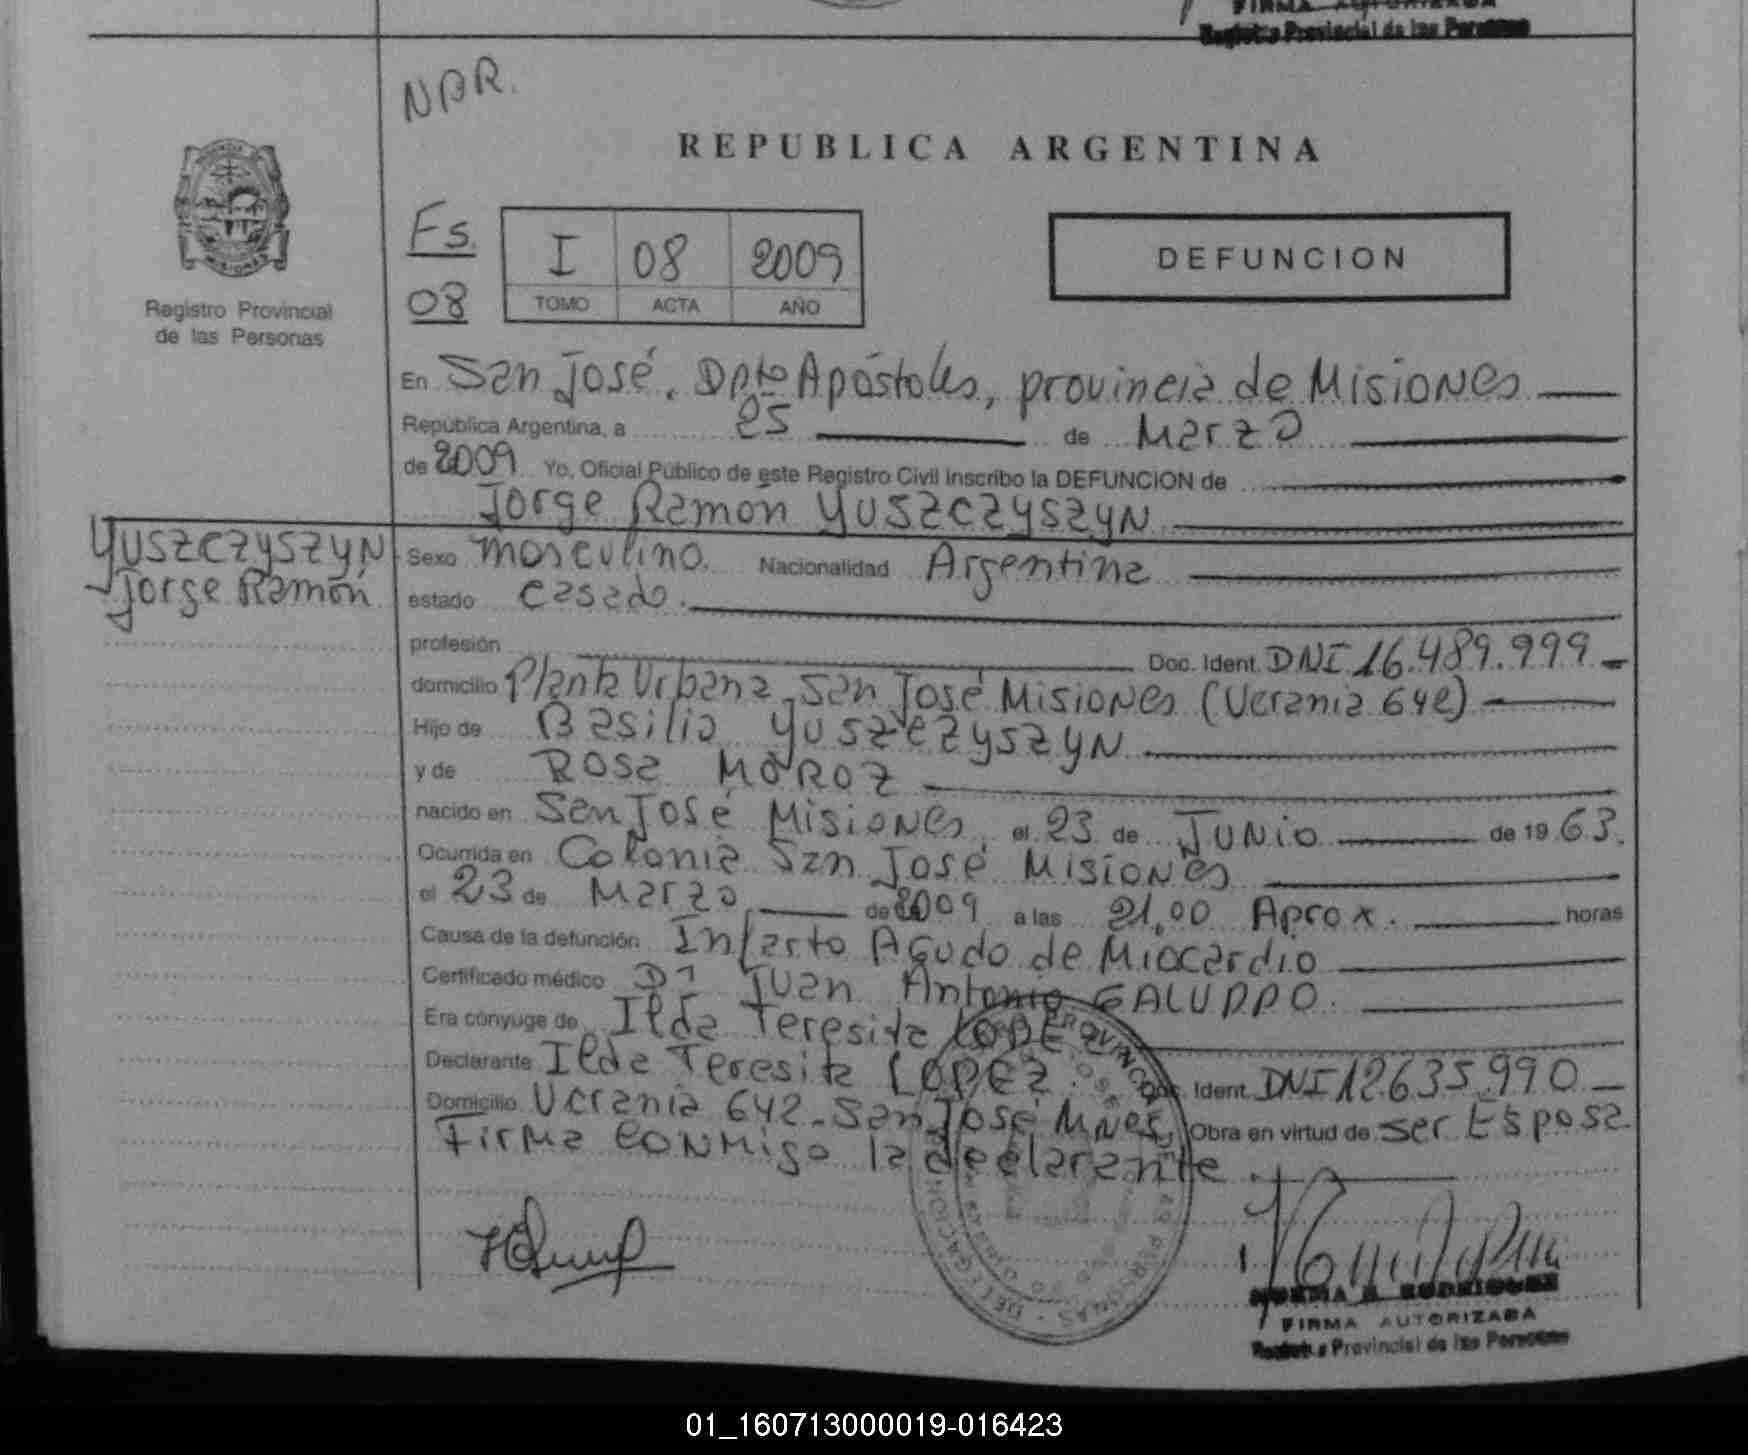 FIRMA AUTORIZADA
Registro Provincial de las Personas
NPR.
REPUBLICA ARGENTINA
PROVINCIA
MISIONES
Registro Provincial
de las Personas
Fs.
08
I 08 2009
TOMO ACTA AÑO
DEFUNCION
En San José, Dpto Apóstoles, provincia de Misiones
República Argentina, a 25 de Marzo
de 2009 Yo, Oficial Público de este Registro Civil Inscribo la DEFUNCION de
Jorge Ramón YUSZCZYSZYN
YUSZCZYSZYN
Jorge Ramón
Sexo masculino. Nacionalidad Argentina
estado casado.
profesión Doc. Ident. DNI 16.489.999
domicilio Planta Urbana San José Misiones (Ucrania 642)
Hijo de Basilio YUSZCZYSZYN
y de Rosa MOROZ
nacido en San José Misiones, el 23 de Junio de 1963.
Ocurrida en Colonia San José Misiones
el 23 de Marzo de 2009 a las 21,00 Aprox. horas
Causa de la defunción Infarto Agudo de Miocardio
Certificado médico Dr Juan Antonio GALUPPO.
Era cónyuge de Ilda Teresita LOPEZ
Declarante Ilda Teresita LOPEZ. Doc. Ident. DNI 12.635.990
Domicilio Ucrania 642 - San José Mnes Obra en virtud de ser Esposa
Firma conmigo la declarante
NORMA RODRIGUEZ
FIRMA AUTORIZADA
Registro Provincial de las Personas
01_160713000019-016423